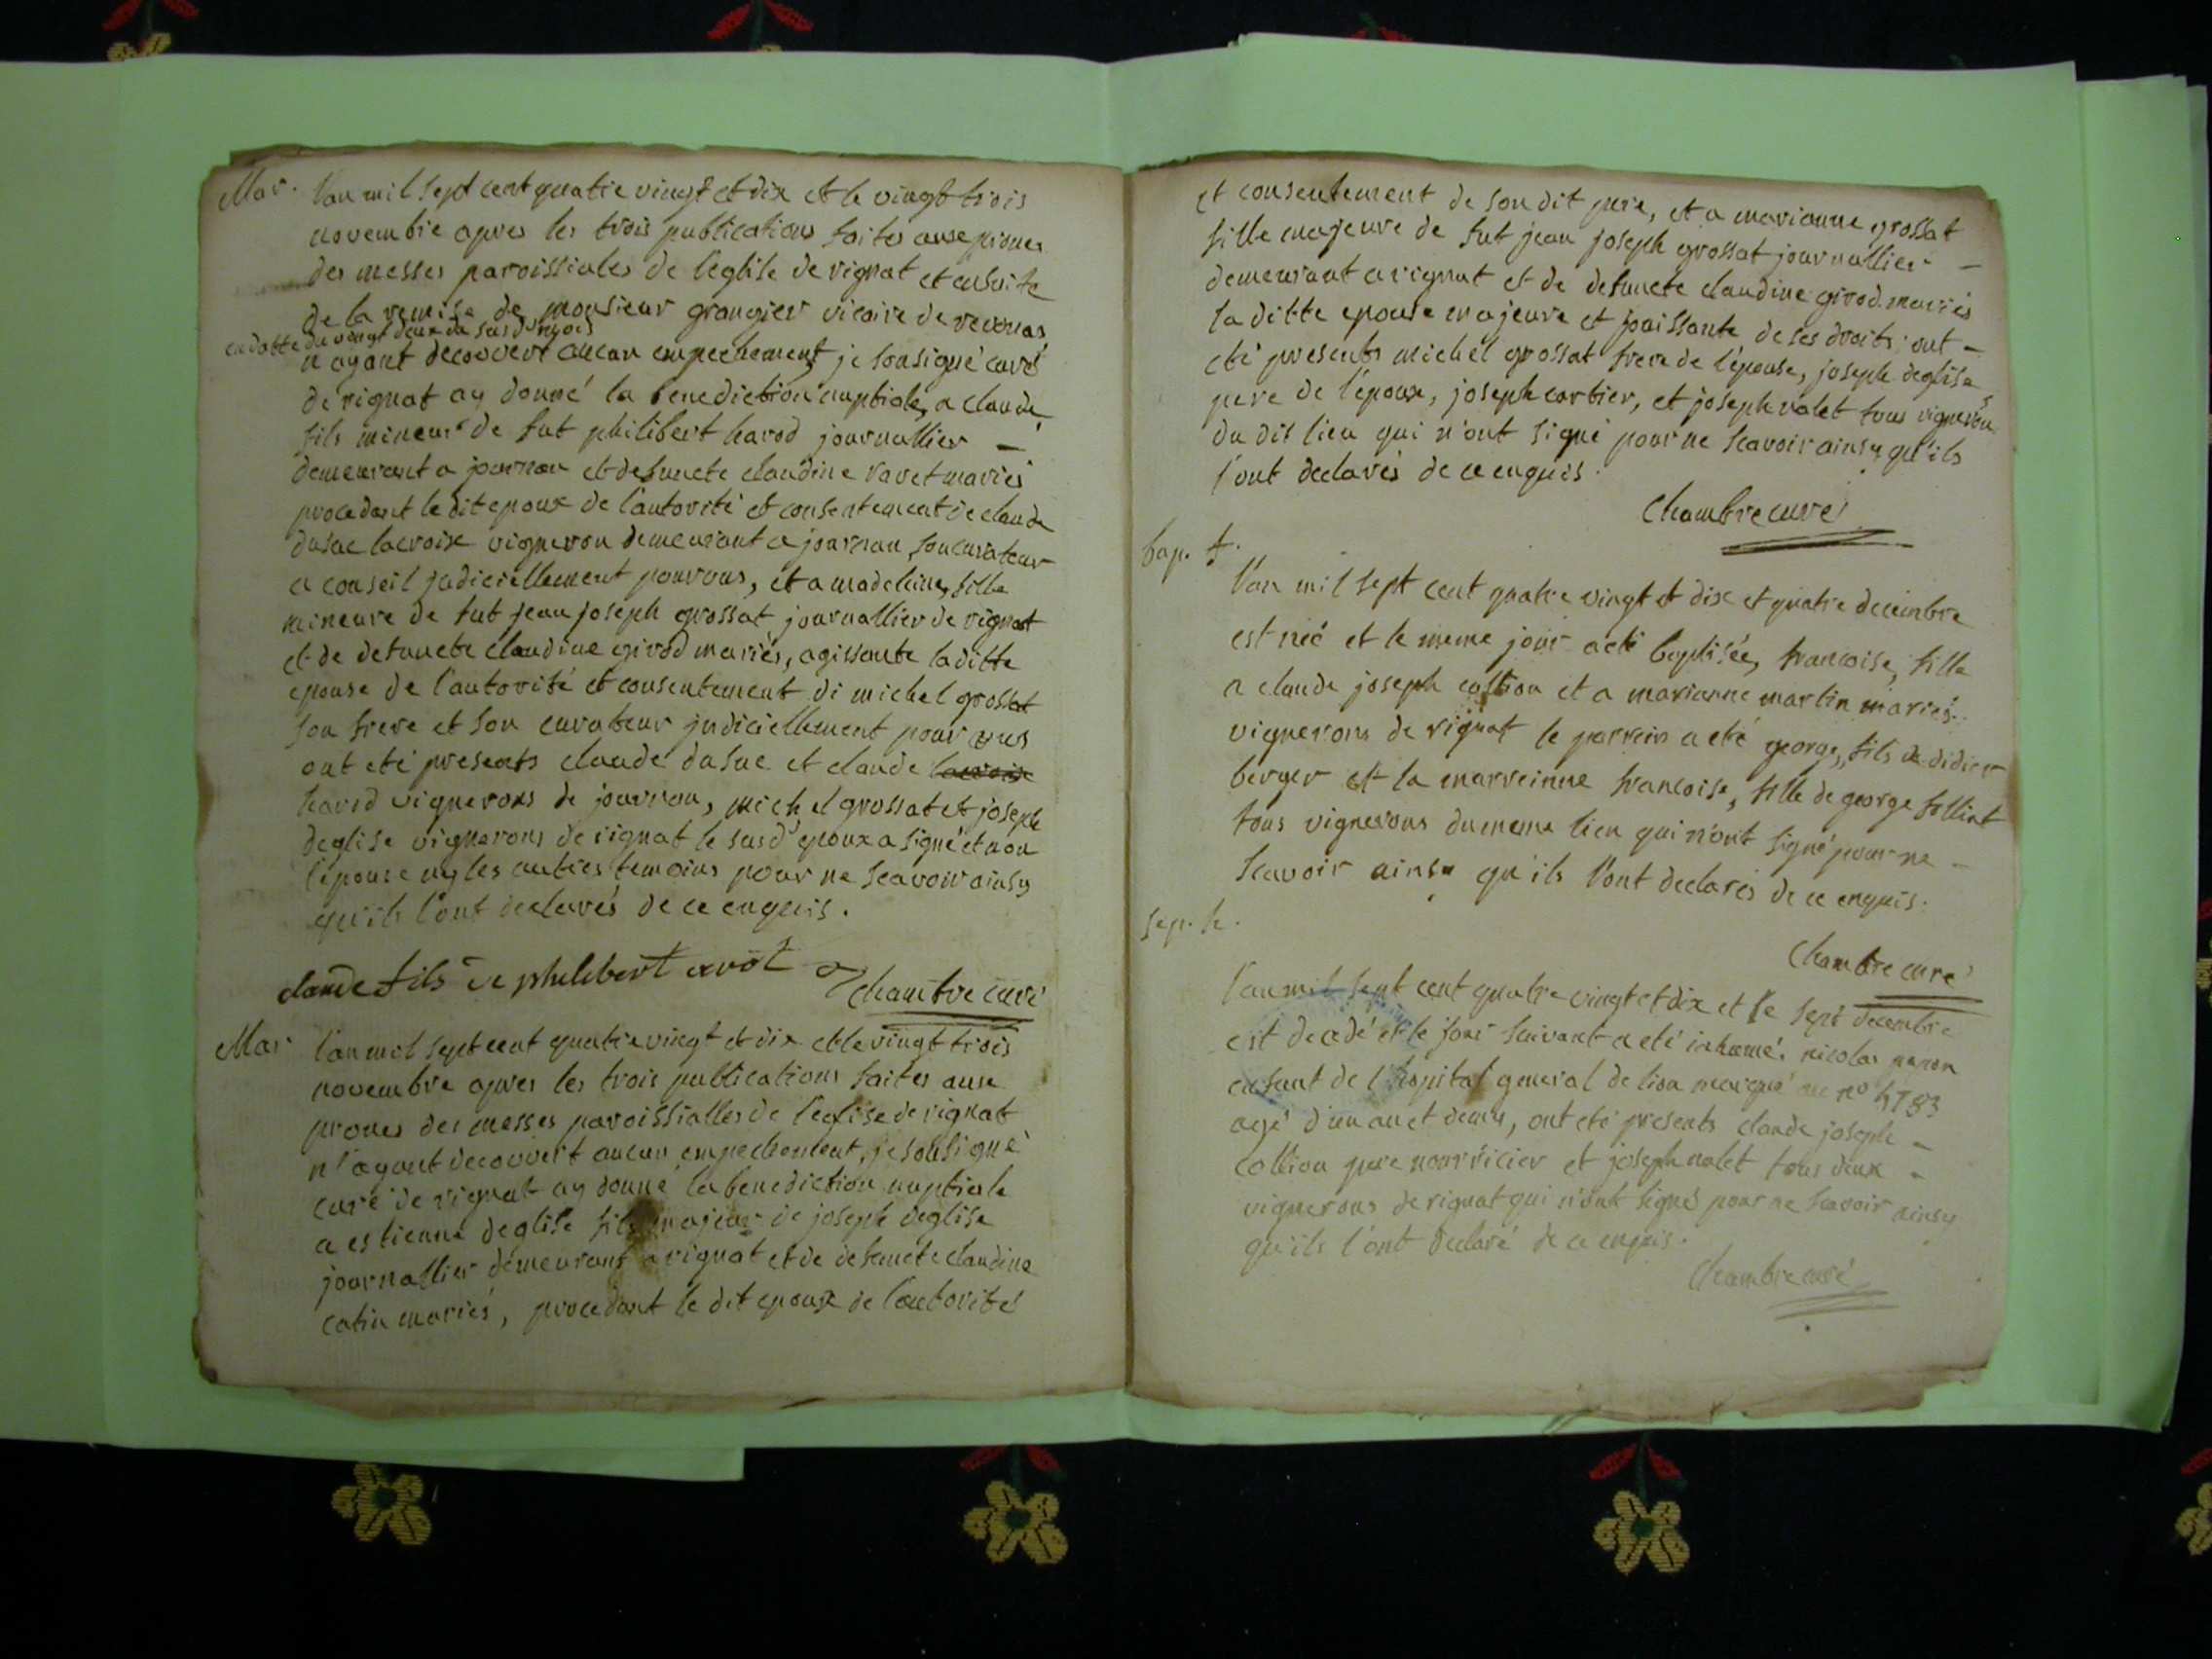 Mar. l'an mil sept cent quatre vingt et dix et le vingt trois
novembre apres les trois publications faites aux prones
des messes paroissiales de l'eglise de rignat et ensuite
de la remise de monsieur grangier vicaire de revonas
en datte du vingt deux du susd' mois
n'ayant decouvert aucun empechement je sousigné curé
de rignat ay donné la benediction nuptiale, a claude
fils mineur de fut philibert harod journallier —
demeurant a journan et defuncte claudine ravet mariés
procedant le dit epoux de l'autorité et consentement de claude
dusac lacroix vigneron demeurant a journan, son curateur
a conseil judiciellement pourvus, et a madelaine, fille
mineure de fut jean joseph grossat journallier de rignat
et de defuncte claudine girod mariés, agissante laditte
epouse de l'autorité et consentement di michel grossat
son frere et son curateur judiciellement pourvus
ont eté presents claude dusuc et claude lacroix
harod vignerons de journan, michel grossat et joseph
deglise vignerons de rignat le susd' epoux a signé et non
l'epouse ny les autres temoins pour ne scavoir ainsy
qu'ils l'ont declarés de ce enquis.
claude fils de philibert arot
Chambre curé
Mar l'an mil sept cent quatre vingt et dix et le vingt trois
novembre apres les trois publications faites aux
prones des messes paroissialles de l'eglise de rignat
n'ayant decouvert aucun empechement, je sousigné
curé de rignat ay donné la benediction nuptiale
a estienne deglise fils majeur de joseph deglise
journallier demeurant a rignat et de defuncte claudine
catin mariés, procedant le dit epoux de l'autorité
et consentement de son dit pere, et a marianne grossat
fille majeure de fut jean joseph grossat journallier —
demeurant a rignat et de defuncte claudine girod mariés
la ditte epouse majeure et jouissante de ses droits ont —
eté presents michel grossat frere de l'epouse, joseph deglise
pere de l'époux, joseph cortier, et joseph nalet tous vignerons
du dit lieu qui n'ont signé pour ne scavoir ainsy qu'ils
l'ont declarés de ce enquis.
Chambre curé
bap. f.
l'an mil sept cent quatre vingt et dix et quatre decembre
est neé et le meme jour a eté baptisée, francoise, fille
a claude joseph collion et a marianne martin mariés.
vignerons de rignat le parrein a eté george, fils de didier
berger et la marreinne francoise, fille de george folliat
tous vignerons du meme lieu qui n'ont signé pour ne —
scavoir ainsy qu'ils l'ont declarés de ce enquis.
Chambre curé
sep. h.
l'an mil sept cent quatre vingt et dix et le sept decembre
est decedé et le jour suivant a eté inhumé. nicolas
enfant de l'hopital general de lion marqué au n°
agé d'un an et demy, ont eté presents claude joseph —
collion pere nourricier et joseph nalet tous deux —
vignerons de rignat qui n'ont signés pour ne scavoir ainsy
qu'ils l'ont declaré de ce enquis.
Chambre curé